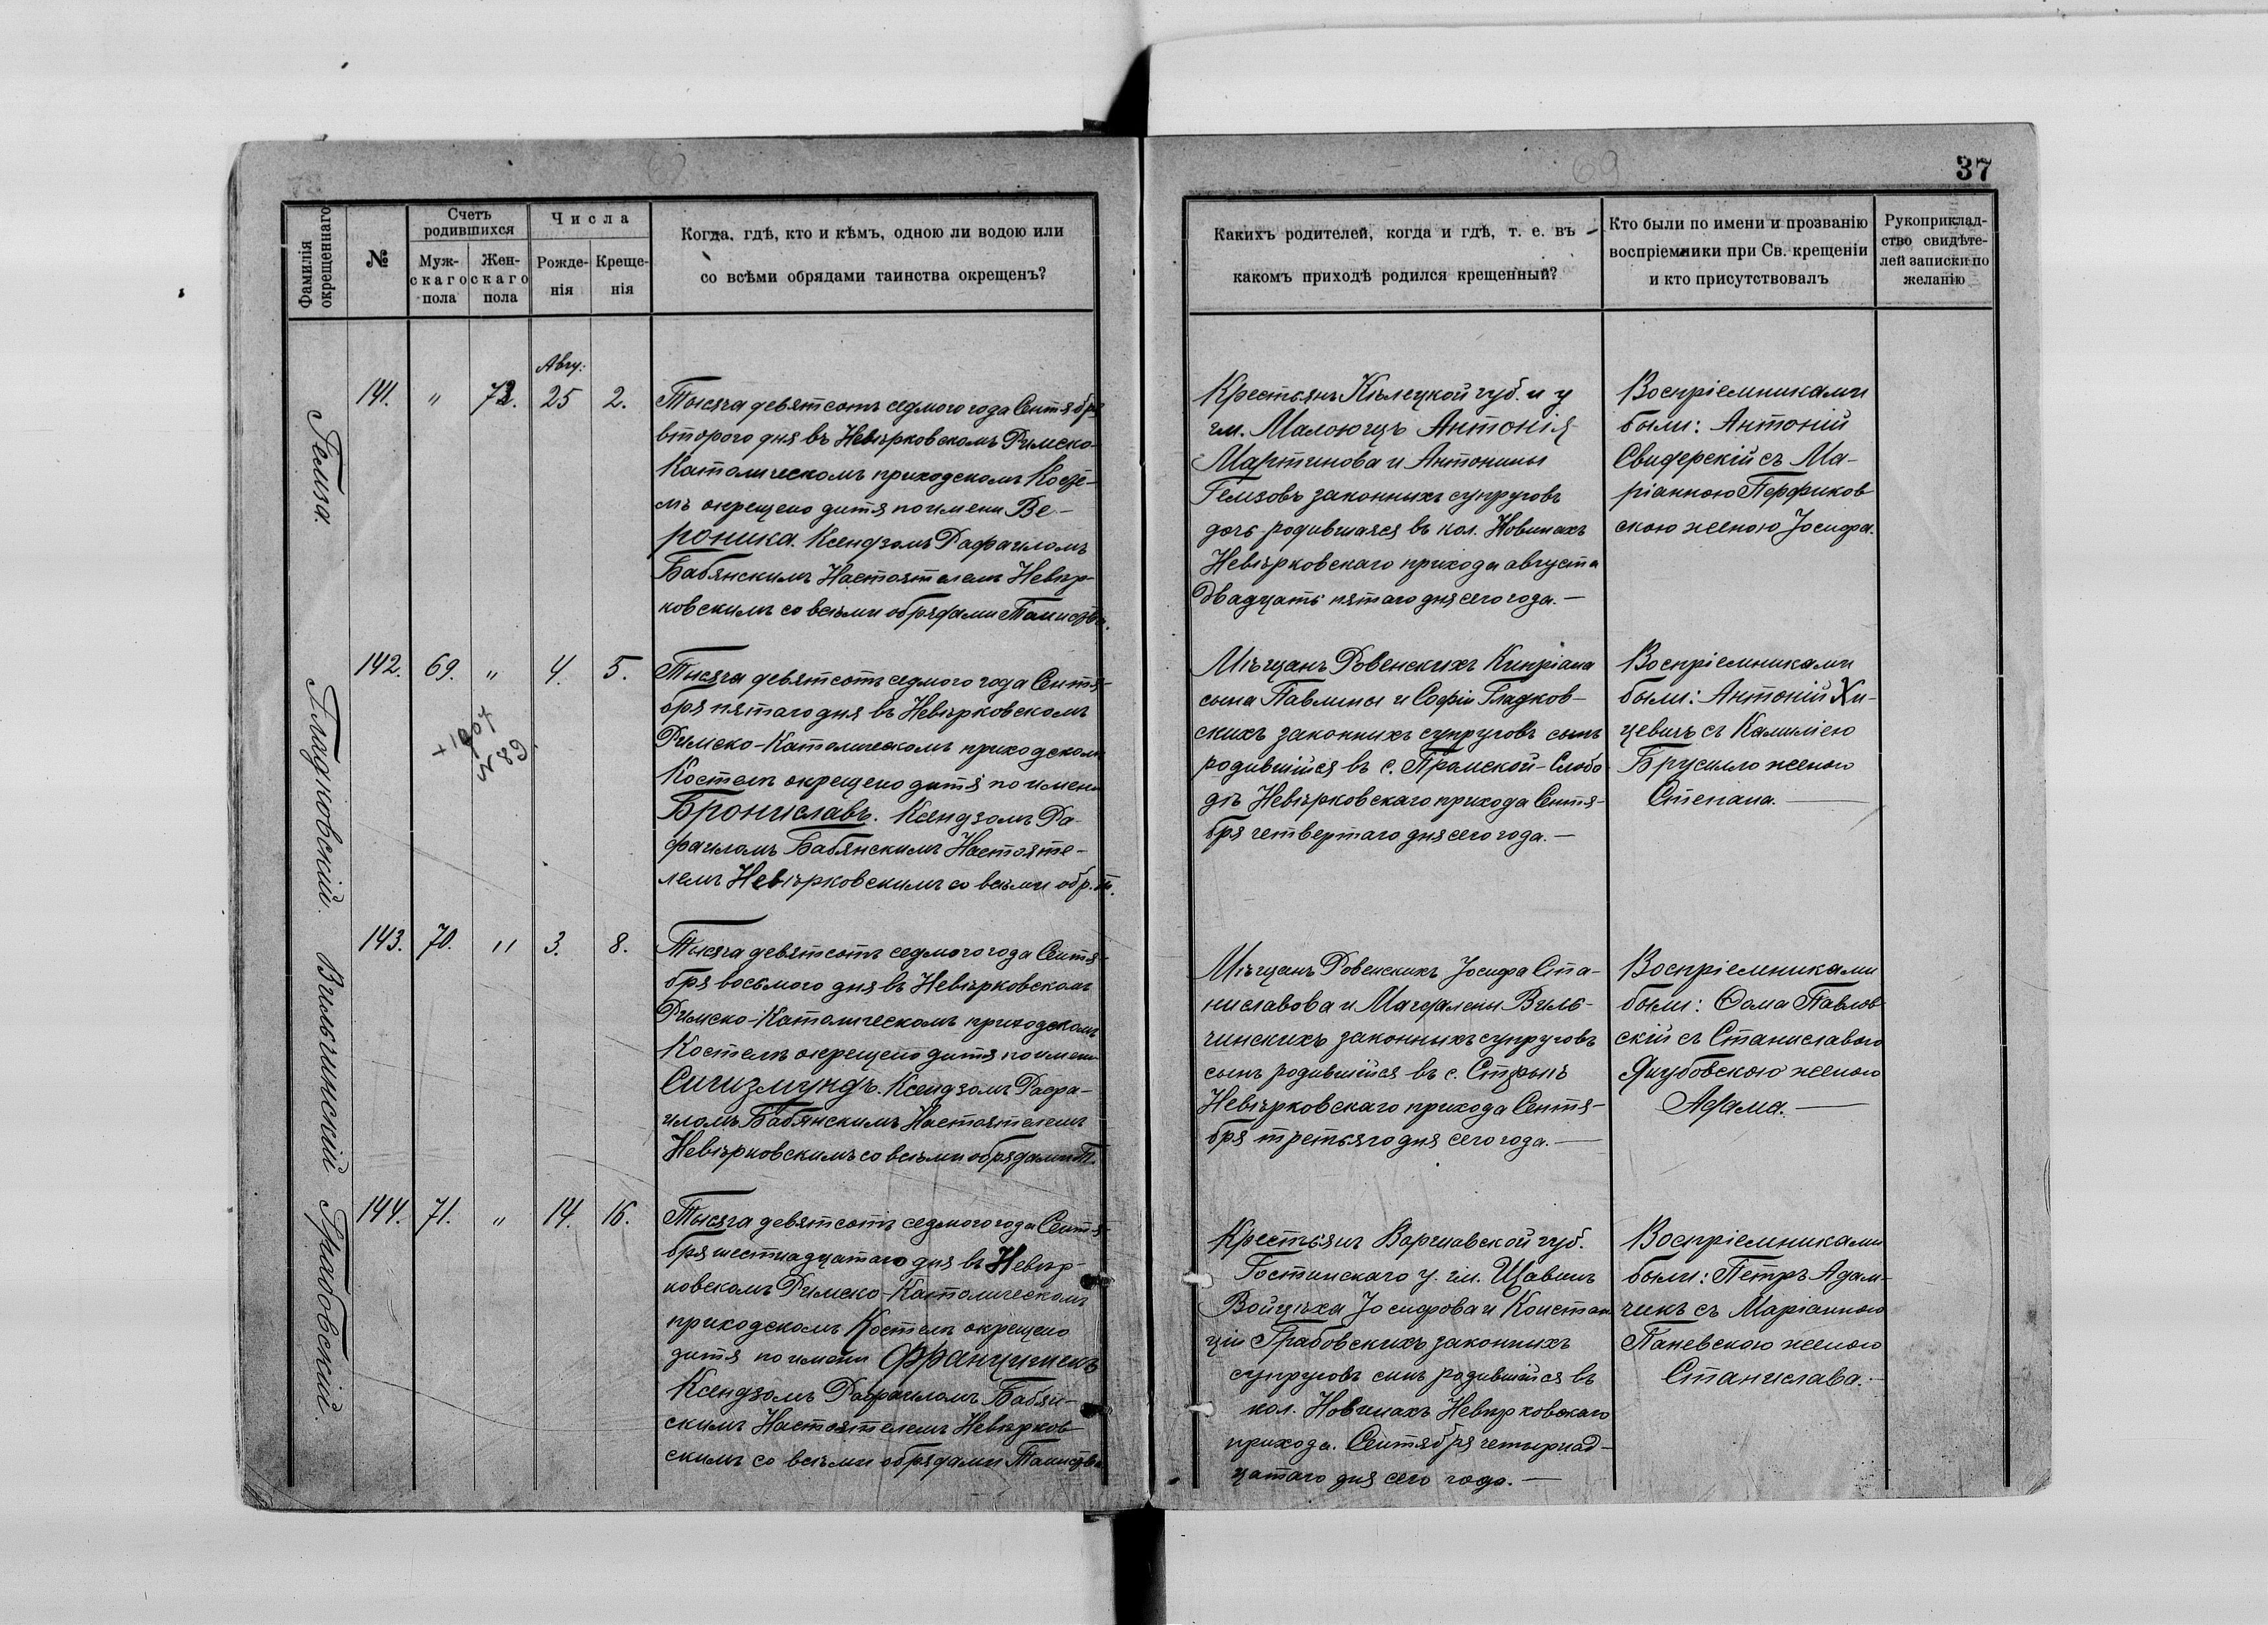 62
69
37
Фамилія окрещеннаго
№
Счетъ родившихся
Мужскаго пола
Женскаго пола
Числа
Рожденія
Крещенія
Когда, гдѣ, кто и кѣмъ, одною ли водою или
со всѣми обрядами таинства окрещенъ?
Какихъ родителей, когда и гдѣ, т. е. въ
какомъ приходѣ родился крещенный?
Кто были по имени и прозванію
воспріемники при Св. крещеніи
и кто присутствовалъ
Рукоприклад-
ство свидѣте-
лей записки по
желанію
Гемза.
141.
"
72.
Авгу:
25
2.
Тысяча девятсотъ седмого года Сентября
второго дня въ Невѣрковскомъ Римско-
Католическомъ приходскомъ Костё-
лѣ окрещено дитя по имени Ве-
роника. Ксендзомъ Рафаиломъ
Бабянскимъ Настоятелемъ Невѣр-
ковскимъ со всѣми обрядами Таинства.
Крестьянъ Кѣлецкой губ. и у
гм. Малоющъ Антонія
Мартинова и Антонины
Гемзовъ законныхъ супруговъ
дочь родившаяся въ кол. Новинахъ
Невѣрковскаго прихода августа
двадцать пятаго дня сего года. —
Воспріемниками
были: Антоній
Свидерскій съ Ма-
ріанною Перфиков
скою женою Іосифа.
Гладковскій.
142.
69.
"
4.
5.
+ 1907
№ 89.
Тысяча девятсотъ седмого года Сентя-
бря пятаго дня въ Невѣрковскомъ
Римско-Католическомъ приходскомъ
Костелѣ окрещено дитя по имени
Брониславъ. Ксендзомъ Ра-
фаиломъ Бабянскимъ Настояте-
лемъ Невѣрковскимъ со всѣми обр. т.
Мѣщанъ Ровенскихъ Кипріана
сына Павлины и Софіи Гладков-
скихъ законныхъ супруговъ сынъ
родившійся въ с. Прамской-Слобо
дѣ Невѣрковскаго прихода Сентя-
бря четвертаго дня сего года. —
Воспріемниками
были: Антоній Хи-
цевичъ съ Камиліею
Брусилло женою
Степана. —
Вильчинскій
143.
70.
"
3.
8.
Тысяча девятсотъ седмого года Сентя-
бря восьмого дня въ Невѣрковскомъ
Римско-Католическомъ приходскомъ
Костелѣ окрещено дитя по имени
Сигизмундъ. Ксендзомъ Рафа-
иломъ Бабянскимъ Настоятелемъ
Невѣрковскимъ со всѣми обрядами Т.
Мѣщанъ Ровенскихъ Іосифа Ста-
ниславова и Магдалены Виль-
чинскихъ законныхъ супруговъ
сынъ родившійся въ с. Стрыи
Невѣрковскаго прихода Сентя-
бря третьяго дня сего года. —
Воспріемниками
были: Ѳома Павлов
скій съ Станиславою
Якубовскою женою
Адама. —
Грабовскій.
144.
71.
"
14.
16.
Тысяча девятсотъ седмого года Сентя-
бря шестнадцатаго дня въ Невѣр-
ковскомъ Римско-Католическомъ
приходскомъ Костелѣ окрещено
дитя по имени Францишекъ
Ксендзомъ Рафаиломъ Бабян-
скимъ Настоятелемъ Невѣрков
скимъ со всѣми обрядами Таинства
Крестьянъ Варшавской губ.
Гостинскаго у. гм. Щавинъ
Войцѣха Іосифова и Констан
ціи Грабовскихъ законныхъ
супруговъ сынъ родившійся въ
кол. Новинахъ Невѣрковскаго
прихода. Сентября четырнад-
цатаго дня сего года. —
Воспріемниками
были: Петръ Адам-
чикъ съ Маріанною
Паневскою женою
Станислава. —